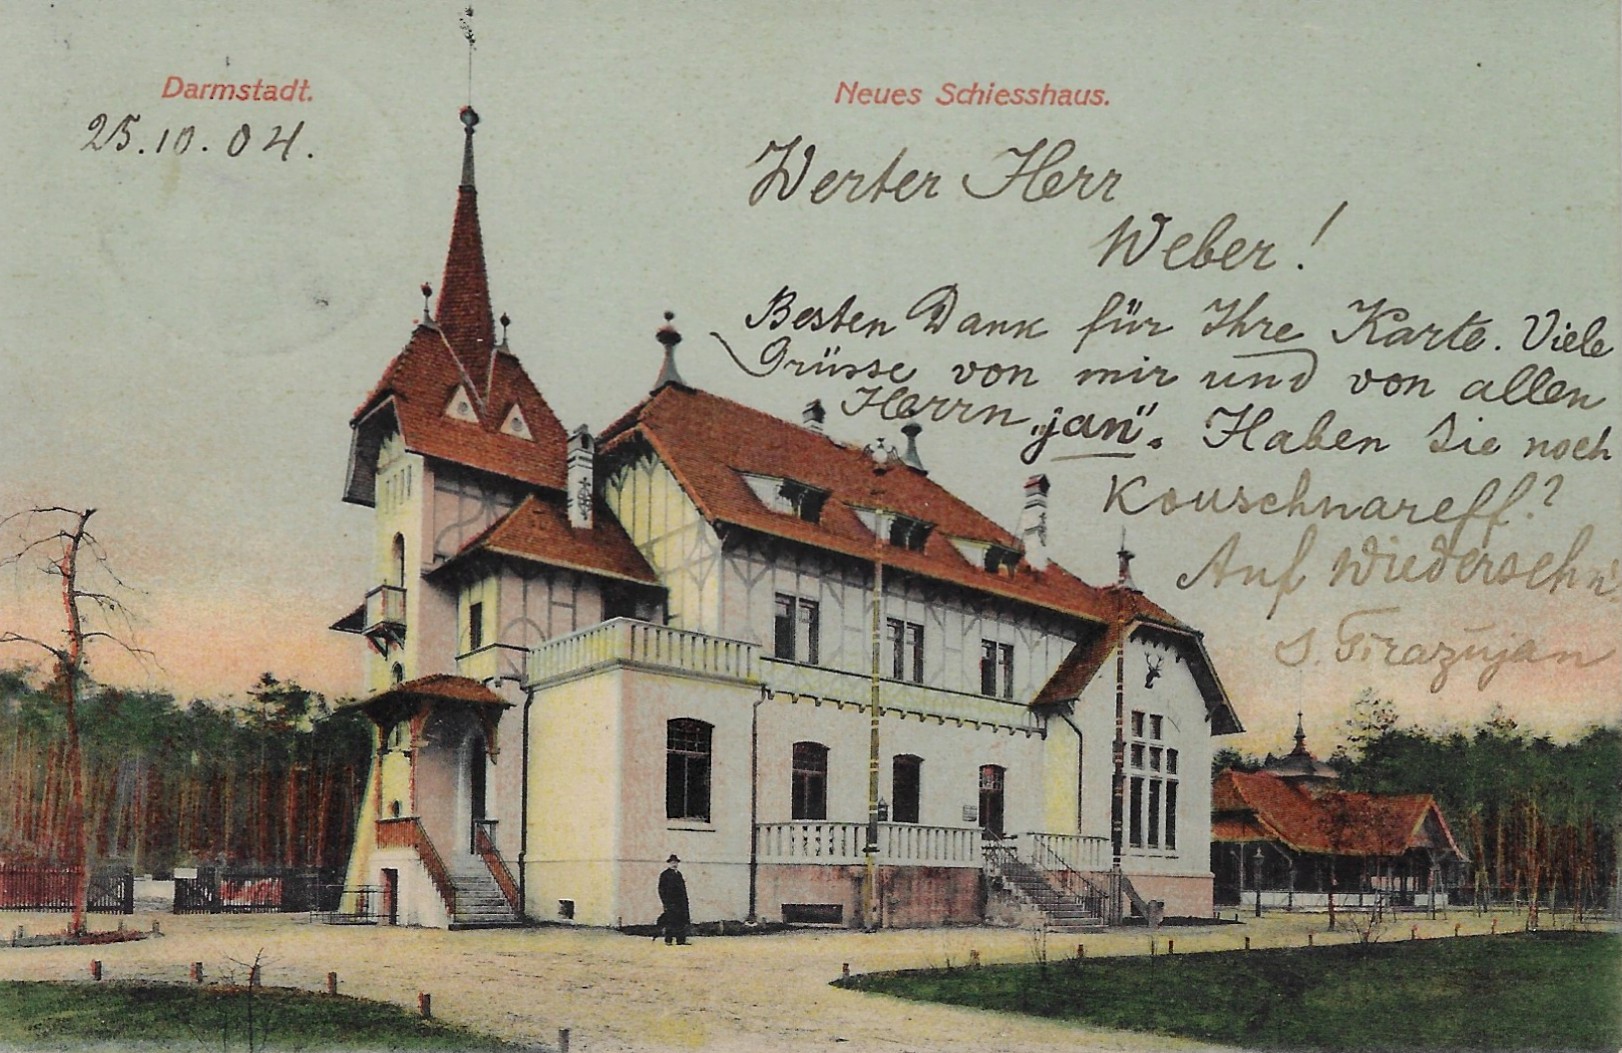 Darmstadt.
Neues Schiesshaus.
25.10.04.
Werter Herr
Weber!
Besten Dank für Ihre Karte. Viele
Grüsse von mir und von allen
Herrn „jan“. Haben Sie noch
Kouschnareff?
Auf Wiedersehn
S.